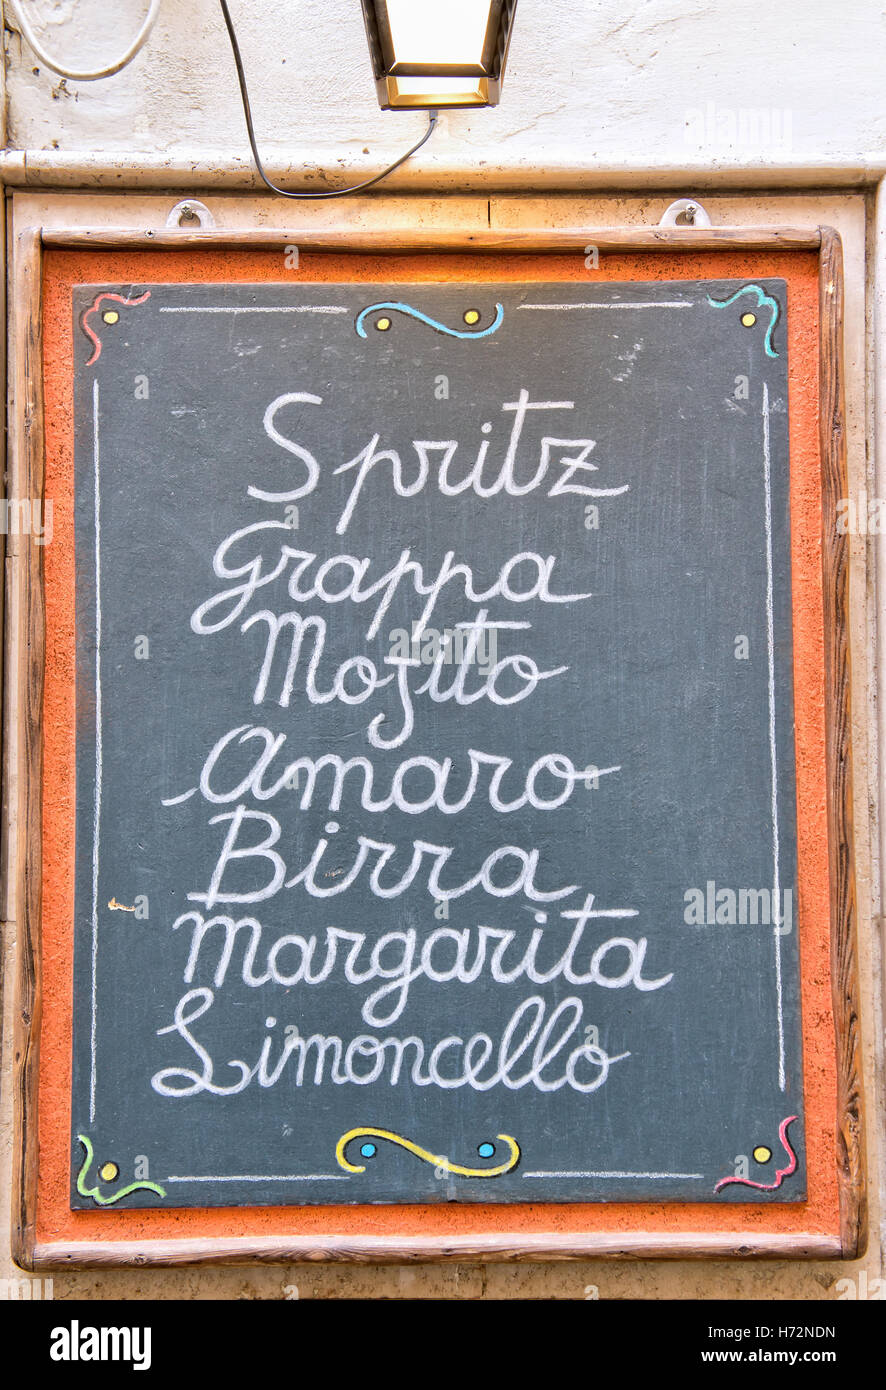 alamy
Spritz
Grappa
Mojito
Amaro
Birra
Margarita
Limoncello
alamy
alamy
Image ID: H72NDN
www.alamy.com